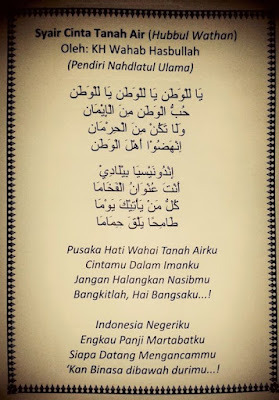 Syair Cinta Tanah Air (Hubbul Wathan)
Oleh: KH Wahab Hasbullah
(Pendiri Nahdlatul Ulama)
يَا لَلْوَطَنْ يَا لَلْوَطَنْ يَا لَلْوَطَنْ
حُبُّ الْوَطَنْ مِنَ الْإِيْمَانْ
وَلَا تَكُنْ مِنَ الْحِرْمَانْ
اِنْهَضُوْا أَهْلَ الْوَطَنْ
إِنْدُونَيْسِيَا بِيْلَادِيْ
أَنْتَ عُنْوَانُ الْفَخَامَا
كُلُّ مَنْ يَأْتِيْكَ يَوْمًا
طَامِحًا يَلْقَ حِمَامَا
Pusaka Hati Wahai Tanah Airku
Cintamu Dalam Imanku
Jangan Halangkan Nasibmu
Bangkitlah, Hai Bangsaku...!
Indonesia Negeriku
Engkau Panji Martabatku
Siapa Datang Mengancammu
‘Kan Binasa dibawah durimu...!